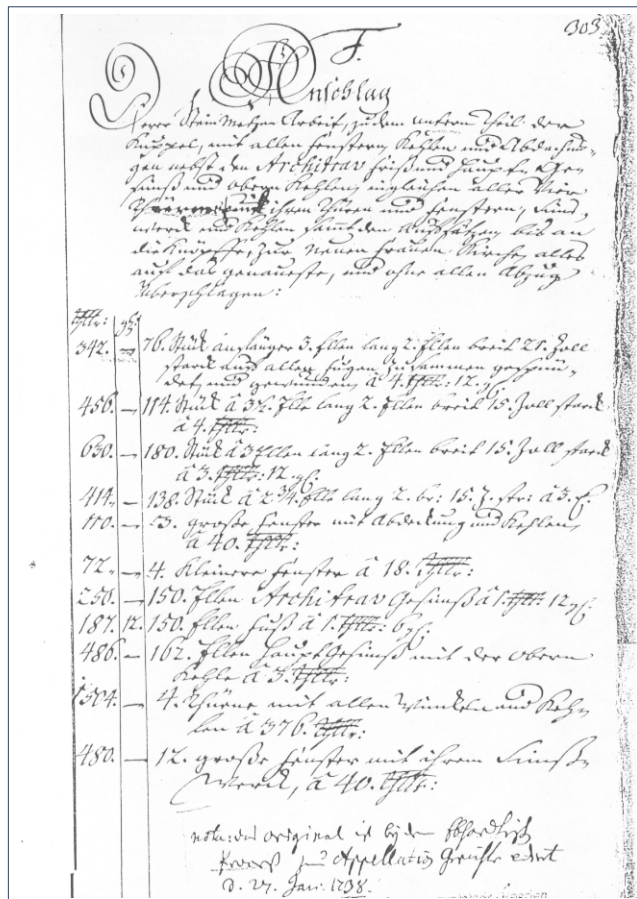 303.
F.
Anschlag
Derer Steinmetzen Arbeit, zu dem untern Theil der
Kuppel, mit allen Fenstern Kehlen und Abdachun-
gen nebst den Architrav Frieß und Haupt
simß und obern Kehlen, ingleichen aller Vier
Thürme ihren Thüren und Fenstern, Sims
werck und Kehlen sammt den Auffsätzen bis an
die Knöpffe, zur Neuen Frauen Kirche, alles
auf das genaueste, und ohne allen Abzug
überschlagen:
Thlr: gl:
342. — 76. Stück anfänger 3. Ellen lang 2. Ellen breit 21. Zoll
starck aus allen Fugen zusammen
und gewunden, à 4. Thlr: 12. gl.
456. — 114. Stück à 3½ Elle lang 2. Ellen breit 15. Zoll starck
à 4. Thlr:
630. — 180. Stück à 3 Ellen lang 2. Ellen breit 15. Zoll starck
à 3. Thlr: 12 gl.
414. — 138. Stück à 2¾ Elle lang 2. br: 15. Z. str: à 3.
große Fenster mit Abdeckung und Kehlen,
à 40. Thlr:
72. — 4. Kleinere Fenster à 18. Thlr:
250. — 150. Ellen Architrav Gesimß à 1. Thlr: 12 gl.
187. 12. 150. Ellen à 1. Thlr: 6 gl.
486. — 162. Ellen Haupt Gesimß mit der obern
Kehle à 3. Thlr:
1504. — 4. Thürme mit allen Winckeln und Keh-
len à 376. Thlr:
480. — 12. große Fenster mit ihrem Simß-
Werck, à 40. Thlr:
nota: das original ist bey dem
Appellation edirt
d. 27. Jan: 1738.